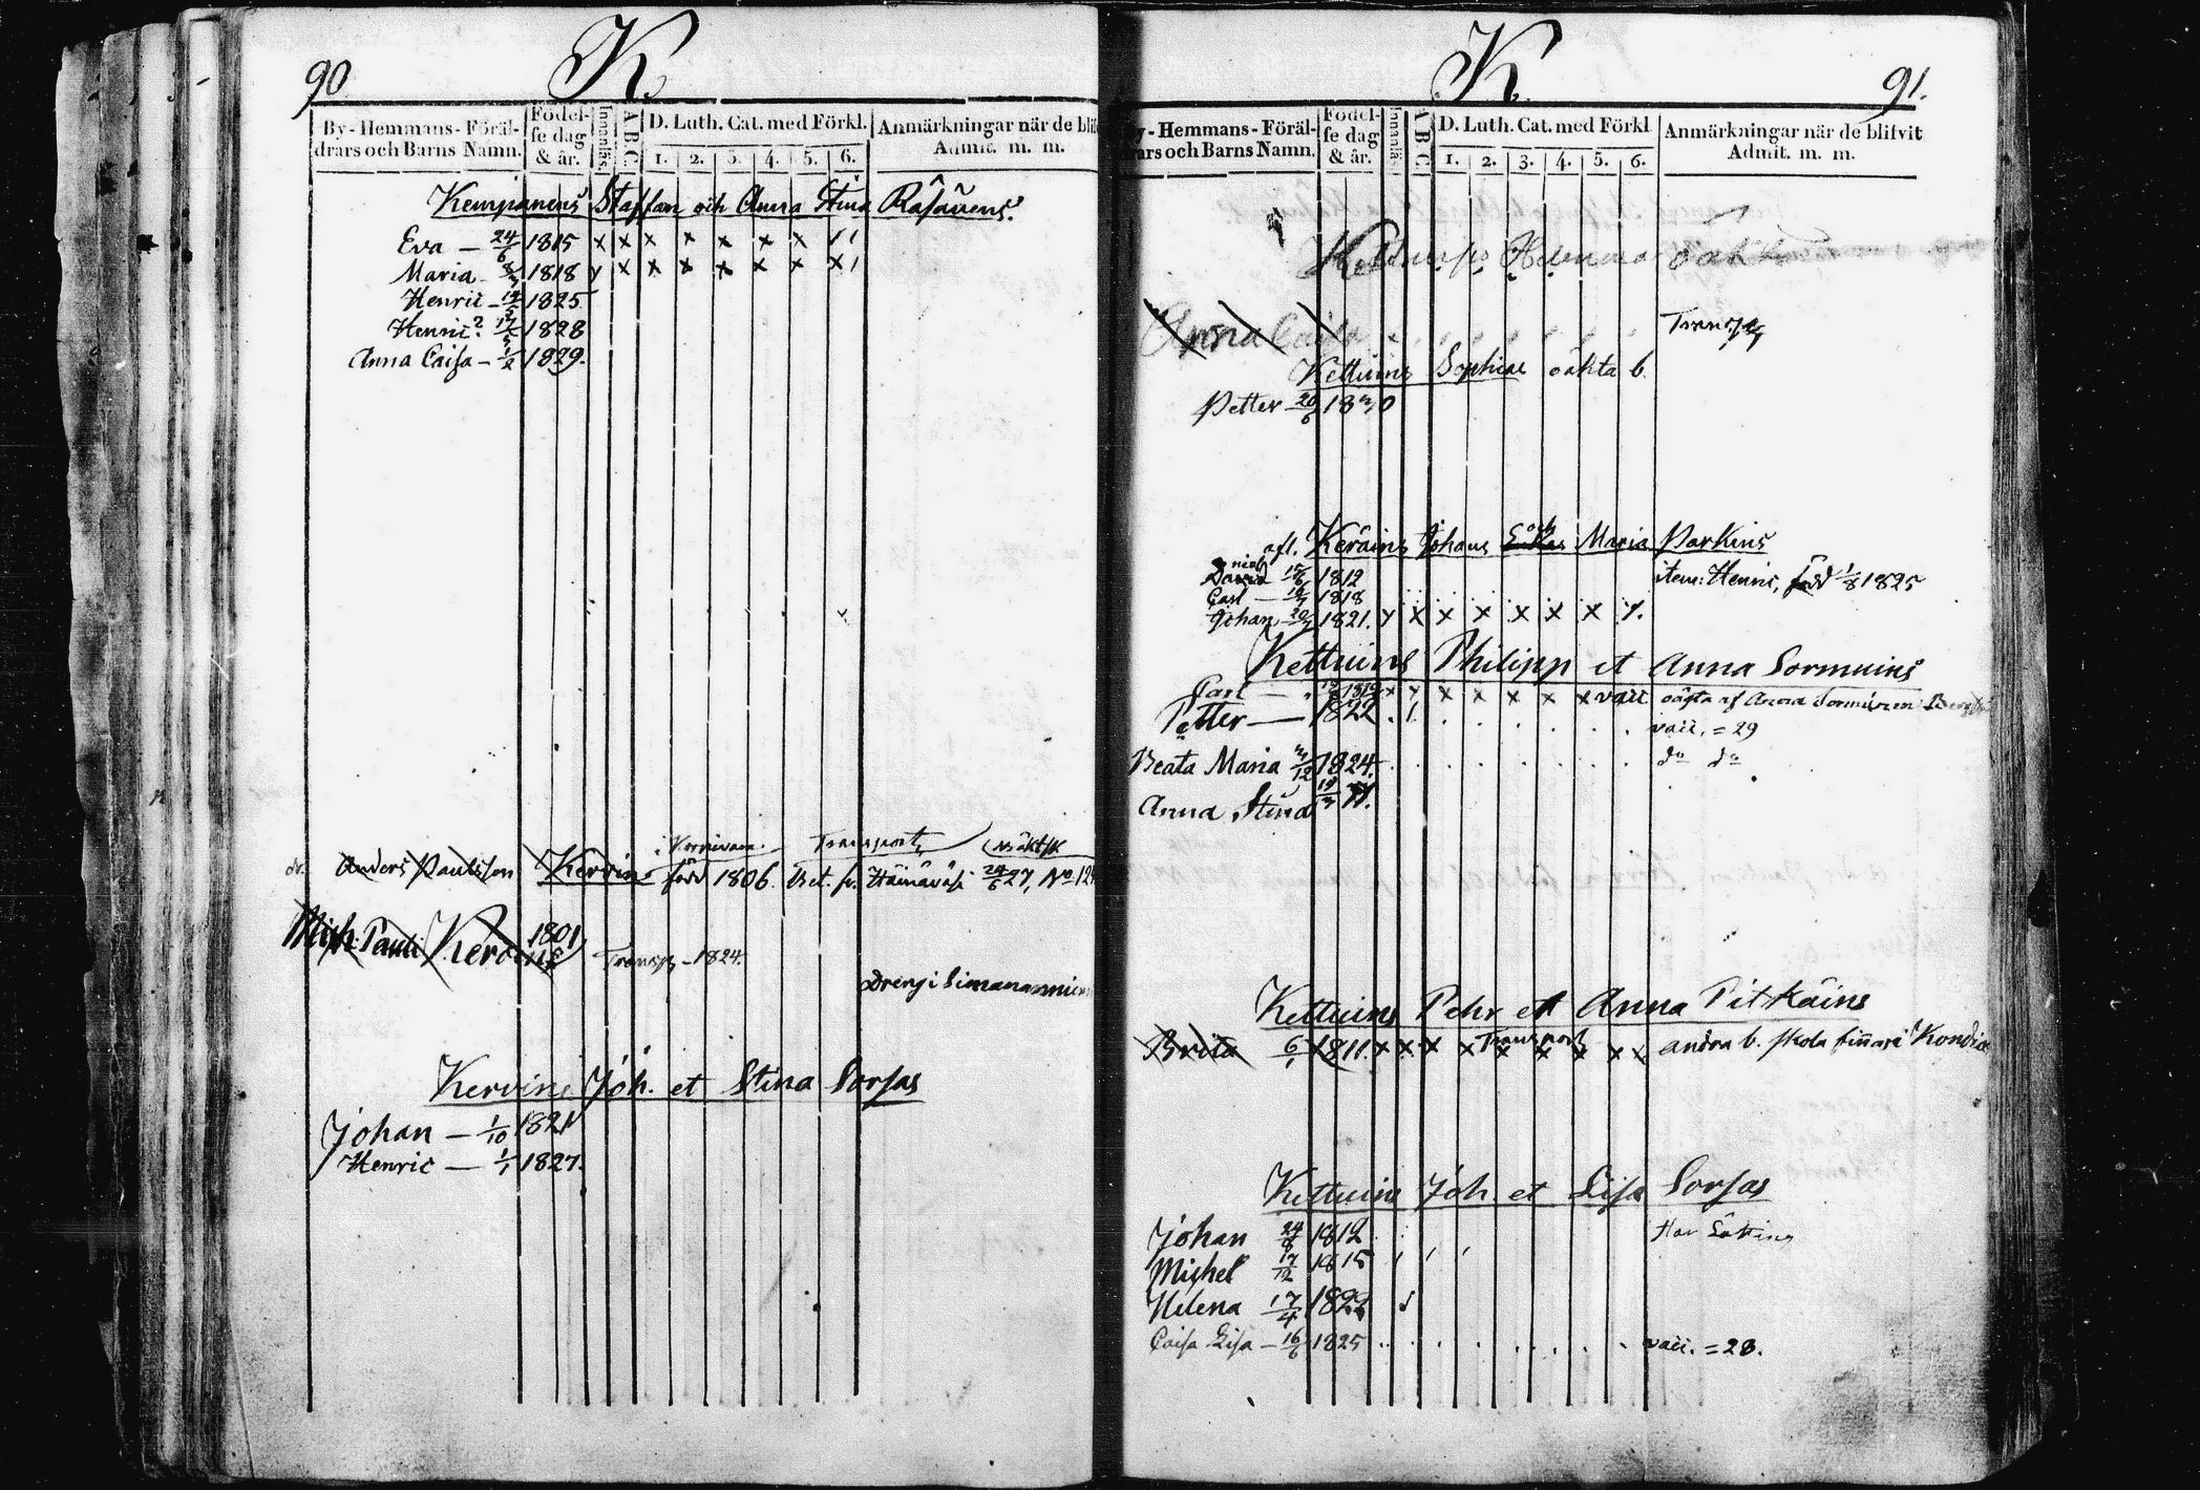 90
K.
By-Hemmans-Föräl-
drars och Barns Namn.
Födel-
se dag
& år.
Innanläs.
A B C.
D. Luth. Cat. med Förkl.
1. 2. 3. 4. 5. 6.
Anmärkningar när de bli
Admit. m. m.
Kempanens Staffan och Anna Stina Räsänens.
Eva — 24/6 1815 x x x x x x x
Maria 1818 x x x x x x x
Henric 1825
Henric? 1828
Anna Caisa — 1/2 1829.
Anders Paulsson Kervin född 1806. Bet. fr. Häinäväsi 24/6 27, No
Transport
Mich: Pauli Kervins 1801
Transp — 1824.
Dreng i
Kervins Joh. et Stina Sorsas
Johan — 1/10 1821
Henric — 1/1 1827.
K.
91.
By-Hemmans-Föräl-
drars och Barns Namn.
Födel-
se dag
& år.
Innanläs.
A B C.
D. Luth. Cat. med Förkl.
1. 2. 3. 4. 5. 6.
Anmärkningar när de blifvit
Admit. m. m.
Anna Caisa
Kettuins Sophiae oäkta b.
Petter 20/6 1820
afl. Keräins Johans och Maria Parkins
1812 item: Henric, född 1/8 1825
Carl — 1818
Johan 1821. x x x x x x x
Kettuins Philipp et Anna Sormuins
Carl x x x x x x x vacc oägta af Anna Sormuinen
Petter — 1822 vacc. = 29
Beata Maria 1824. do do
Anna Stina
Kettuins Pehr et Anna Pitkäins
Brita 6/1 1811. x x x x x x x x x Transport andra b.
Kettuins Joh. et Lisa Sorsas
Johan 24/8 1812
Michel 17/12 1815
Helena 17/4 1822
Caisa Lisa — 16/6 1825 vacc. = 28.